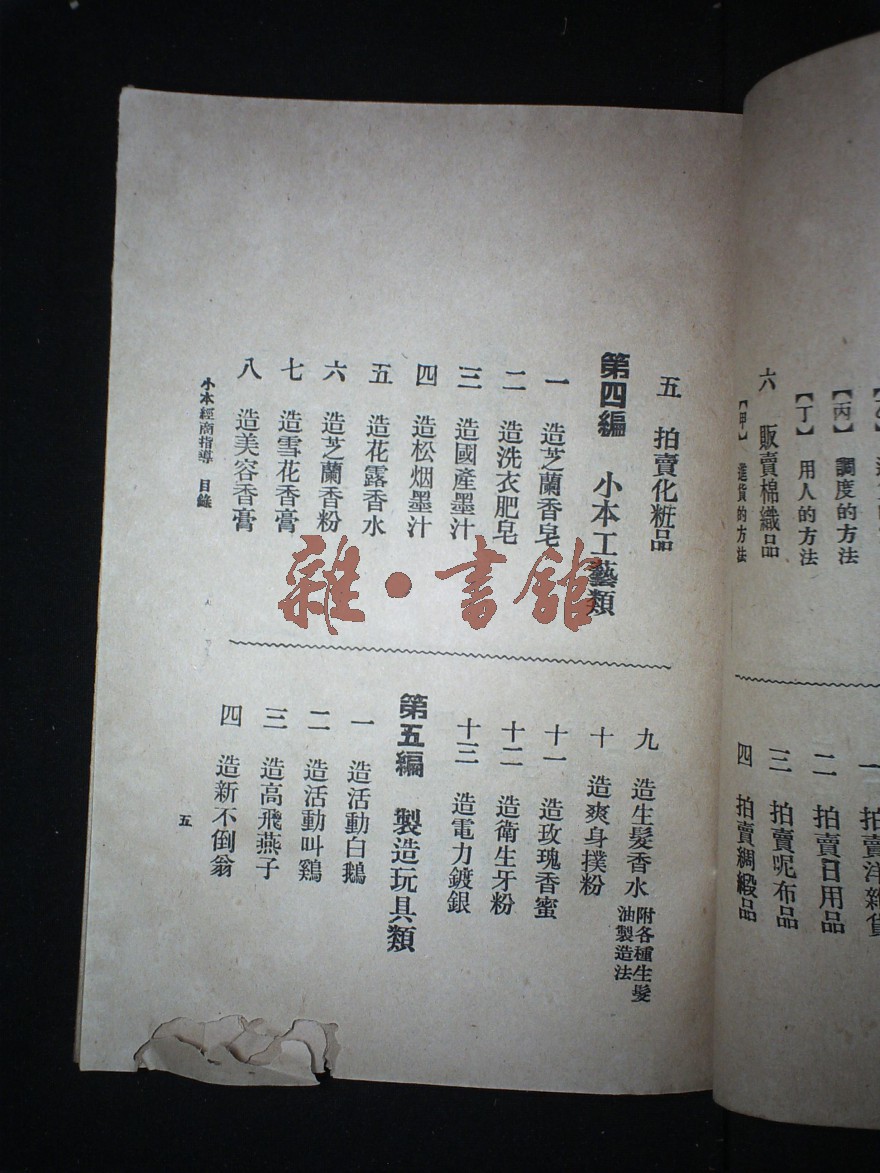 【丙】 調度的方法
【丁】 用人的方法
六 販賣棉織品
【甲】 進貨的方法
拍賣洋雜貨
二 拍賣日用品
三 拍賣呢布品
四 拍賣綢緞品
五 拍賣化粧品
第四編 小本工藝類
一 造芝蘭香皂
二 造洗衣肥皂
三 造國產墨汁
四 造松烟墨汁
五 造花露香水
六 造芝蘭香粉
七 造雪花香膏
八 造美容香膏
小本經商指導 目錄
九 造生髮香水 附各種生髮油製造法
十 造爽身撲粉
十一 造玫瑰香蜜
十二 造衛生牙粉
十三 造電力鍍銀
第五編 製造玩具類
一 造活動白鵝
二 造活動叫鷄
三 造高飛燕子
四 造新不倒翁
五
雜·書館